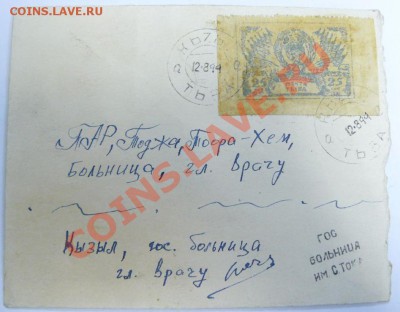 COINS.LAVE.RU
25 25
ПОЧТА
ТЫВА
12-8-44
ТЫВА
12-8-44
ТЫВА
ТАР, Тоджа, Тоора-Хем,
Больница, гл. Врачу
Кызыл, гос. больница
гл. Врачу
ГОС
БОЛЬНИЦА
ИМ С.ТОКА
COINS.LAVE.RU